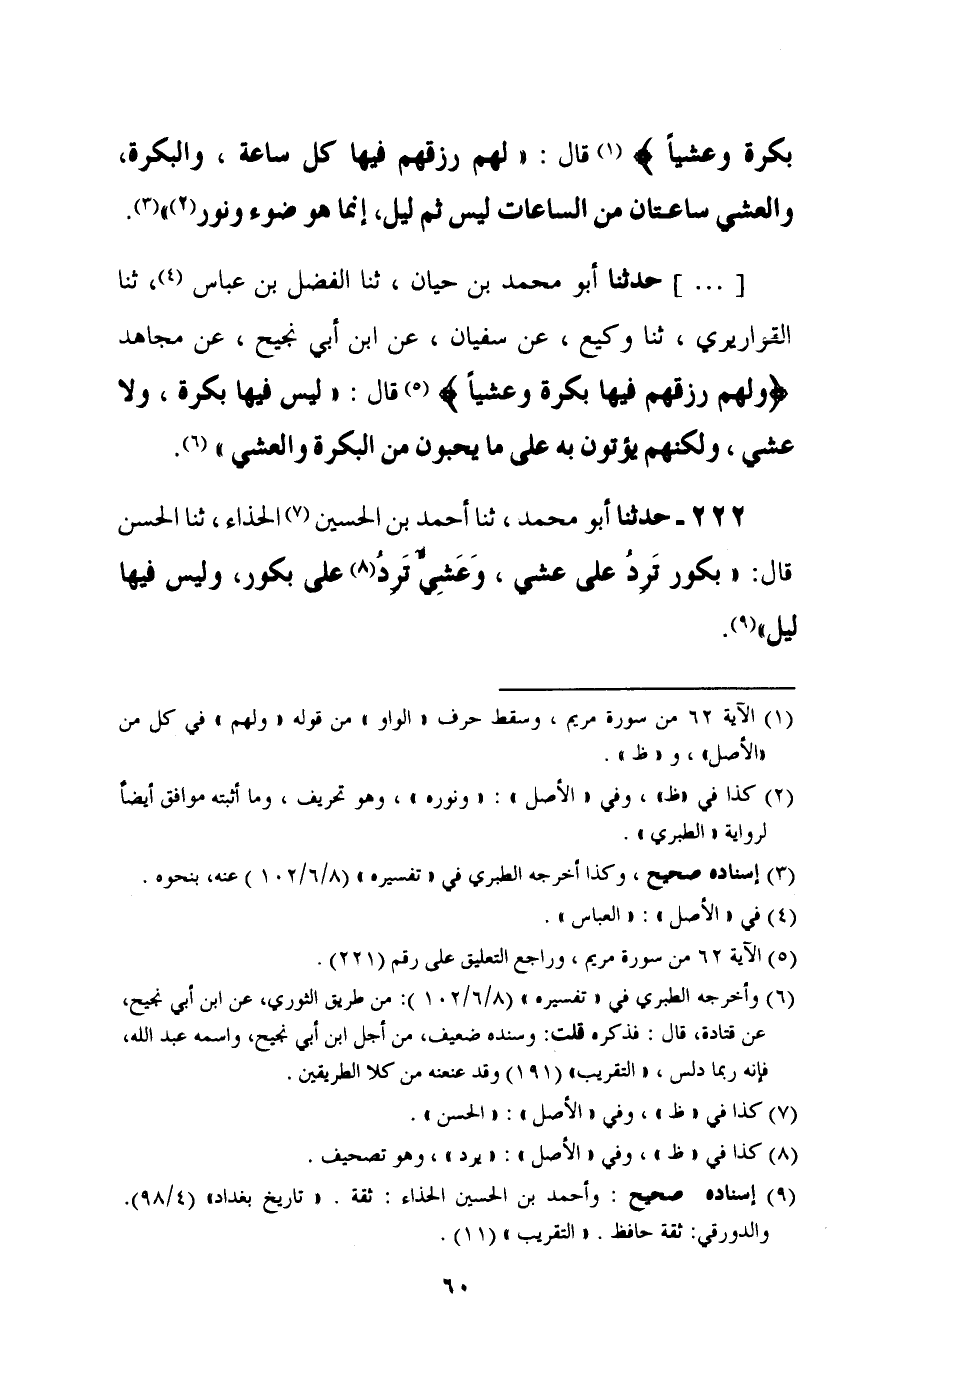 بكرة وعشياً ﴾ (١) قال : « لهم رزقهم فيها كل ساعة ، والبكرة،
والعشي ساعتان من الساعات ليس ثم ليل، إنما هو ضوء ونور(٢)»(٣).
[ ... ] حدثنا أبو محمد بن حيان ، ثنا الفضل بن عباس (٤)، ثنا
القواريري ، ثنا وكيع ، عن سفيان ، عن ابن أبي نجيح ، عن مجاهد
﴿ولهم رزقهم فيها بكرة وعشياً ﴾ (٥) قال : « ليس فيها بكرة ، ولا
عشي ، ولكنهم يؤتون به على ما يحبون من البكرة والعشي » (٦).
٢٢٢ ـ حدثنا أبو محمد ، ثنا أحمد بن الحسين (٧) الحذاء ، ثنا الحسن
قال: « بكور تَرِدُ على عشي ، وَعَشِيٌ تَرِدُ(٨) على بكور، وليس فيها
ليل»(٩).
(١) الآية ٦٢ من سورة مريم ، وسقط حرف « الواو » من قوله « ولهم » في كل من
«الأصل» ، و « ظ » .
(٢) كذا في «ظ» ، وفي « الأصل » : « ونوره » ، وهو تحريف ، وما أثبته موافق أيضاً
لرواية « الطبري » .
(٣) إسناده صحيح ، وكذا أخرجه الطبري في « تفسيره » (١٠٢/٦/٨ ) عنه، بنحوه .
(٤) في « الأصل » : « العباس » .
(٥) الآية ٦٢ من سورة مريم ، وراجع التعليق على رقم (٢٢١) .
(٦) وأخرجه الطبري في « تفسيره » (١٠٢/٦/٨ ): من طريق الثوري، عن ابن أبي نجيح،
عن قتادة، قال : فذكره قلت: وسنده ضعيف، من أجل ابن أبي نجيح، واسمه عبد الله،
فإنه ربما دلس ، « التقريب» (١٩١) وقد عنعنه من كلا الطريقين .
(٧) كذا في « ظ » ، وفي « الأصل » : « الحسن » .
(٨) كذا في « ظ » ، وفي « الأصل » : « يرد » ، وهو تصحيف .
(٩) إسناده صحيح : وأحمد بن الحسين الحذاء : ثقة . « تاريخ بغداد» (٩٨/٤).
والدورقي: ثقة حافظ . « التقريب » (١١) .
٦٠